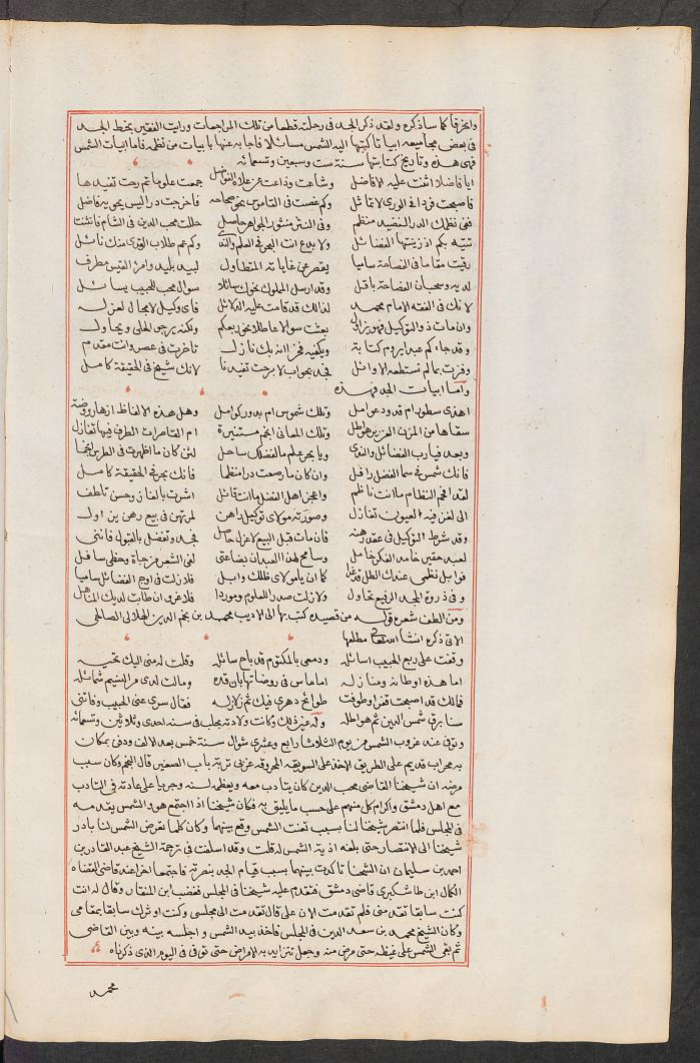 وانحرفا كما ساذكره ولقد ذكر الجد فى رحلته قطعا من تلك المراجعات ورايت الفقير بخط الجد
فى بعض مجاميعه ابياتا كتبها اليه الشمس مسائلا فاجابه عنها بابيات من نظمه فاما ابيات الشمس
فهى هذه وتاريخ كتابتها سنة ست وسبعين وتسعمائة
ايا فاضلا اثنت عليه الافاضل وشاعت وذاعت عن علاه الفواضل جمعت علوما ثم رحت تفيدها
فاصبحت فردا فى الورى لا تماثل وكم غصت فى القاموس نحو صحاحه فاخرجت درا ليس يحويه فاضل
ففى نظمك الدر النضيد منظم وفى النثر منثور الجواهر حاصل حللت محب الدين فى الشام فانثنت
تتيه بكم اذ زينتها الفضائل ولا بدع انت البحر فى العلم والندى وكم عم طلاب القرى منك نائل
رقيت مقاما فى الفصاحة ساميا يقصر عن غاياته المتطاول لبيد بليد وامرؤ القيس مطرف
لديه وسحبان الفصاحة باقل وقد ارسل المملوك نحوك سائلا سوال محب للحبيب يسائل
لانك فى الفقه الامام محمد لذالك قد قامت عليه الدلائل فاى وكيل لا مجال لعزله
وان مات ذو التوكيل فهو يزاول بعثت سوالا عاطلا نحو ربعكم ولكنه يرجو الحلى ويحاول
وقد جاءكم عبد يروم كتابة ويكفيه فخرا انه بك نازل تاخرت فى عصر وانت مقدم
وفزت بما لم تستطعه الاوائل فجد بجواب لا برحت تفيدنا لانك شيخ فى الحقيقة كامل
واما ابيات الجد فهذه
اهذى سطور ام قدود عوامل وتلك شموس ام بدور كوامل وهل هذه الالفاظ ازهار روضة
سقاها من المزن الغزير هواطل وتلك المعانى انجم مستنيرة ام القاصرات الطرف فيها تغازل
وبعد فيارب الفضائل والندى ويا بحر علم ما لفضلك ساحل لئن كان ما اظهرت فى الطرس انجما
فانك شمس فى سما الفضل رافل وان كان ما رصعت درا منظما فانك بحر فى الحقيقة كامل
لقد افحم النظام ما انت ناظم واعجز اهل الفضل ما انت قائل اشرت بالغاز وحسن تلطف
الى لغز فيه العيون تغازل وصورته مولاى توكيل راهن لمرتهن فى بيع رهن يزاول
وقد شرط التوكيل فى عقد رهنه فان مات قبل البيع لا عزل حاصل فجد وتفضل بالقبول فاننى
لعبد حقير خامد الفكر خامل وسامح لهذا العبد ان بضاعتى لفى الشعر مزجاة وحظى سافل
فوابل نظمى عندك الطل قد غدا كما ان يا مولاى طلك وابل فلا زلت فى اوج الفضائل ساميا
وفى ذروة المجد الرفيع تحاول ولا زلت صدرا للعلوم وموردا فلا غرو ان طابت لديك المناهل
ومن الطف شعره قوله من قصيدة كتب بها الى الاديب محمد بن نجم الدين الهلالى الصالحى
الاتى ذكره انشا الله تعالى مطلعها
وقفت على ربع الحبيب اسائله ودمعى بالمكتوم قد باح سائله وقلت له منى اليك تحية
اما هذه اوطانه ومنازله اما ماس فى روضاتها بان قده ومالت لدى مر النسيم شمائله
فالك قد اصبحت قفرا وطوقت طوائح دهرى فيك ثم زلازله فقال سرى عنى الحبيب وفاتنى
سنا برق شمس الدين ثم هواطله وله غير ذلك وكانت ولادته بحلب فى سنة احدى وثلاثين وتسعمائة
وتوفى عند غروب الشمس من يوم الثلاثا رابع وعشرى شوال سنة خمس بعد الالف ودفن بمكان
به محراب قديم على الطريق الاخذ على السويقة المحروقة غربى تربة باب الصغير قال النجم وكان سبب
مرضه ان شيخنا القاضى محب الدين كان يتادب معه ويعظمه لسنه وجريا على عادته فى التادب
مع اهل دمشق واكرام كل منهم على حسب ما يليق به فكان شيخنا اذا اجتمع هو والشمس يقدمه
فى المجلس فلما انتصر شيخنا لنا بسبب تعنت الشمس وقع بينهما وكان كلما تعرض الشمس لنا بادر
شيخنا الى الانتصار حتى بلغه اذية الشمس له قلت وقد اسلفت فى ترجمة الشيخ عبد القادر بن
احمد بن سليمان ان الشحنا تاكدت بينهما بسبب قيام الجد بنصرته فاجتمعا اخرا عند قاضى القضاه
الكمال ابن طاشكبرى قاضى دمشق فتقدم عليه شيخنا فى المجلس فغضب ابن المنقار وقال له انت
كنت سابقا تقدمنى فلم تقدمت الان على قال تقدمت الى مجلسى وكنت اوثرك سابقا بمقامى
وكان الشيخ محمد بن سعد الدين فى المجلس فاخذ بيد الشمس واجلسه بينه وبين القاضى
ثم بقى الشمس على غيظه حتى مرض منه وجعل تتزايد به الامراض حتى توفى فى اليوم الذى ذكرناه
محمد